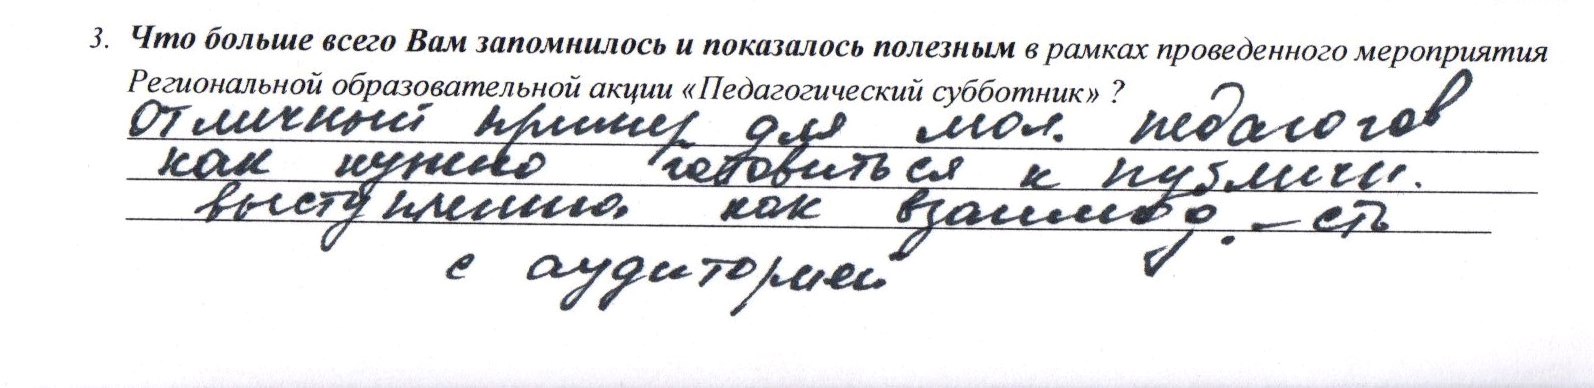 3. Что больше всего Вам запомнилось и показалось полезным в рамках проведенного мероприятия
Региональной образовательной акции «Педагогический субботник» ?
Отличный пример для мол. педагогов
как нужно готовиться к публичн.
выступлению. как взаимод. – сть
с аудиторией